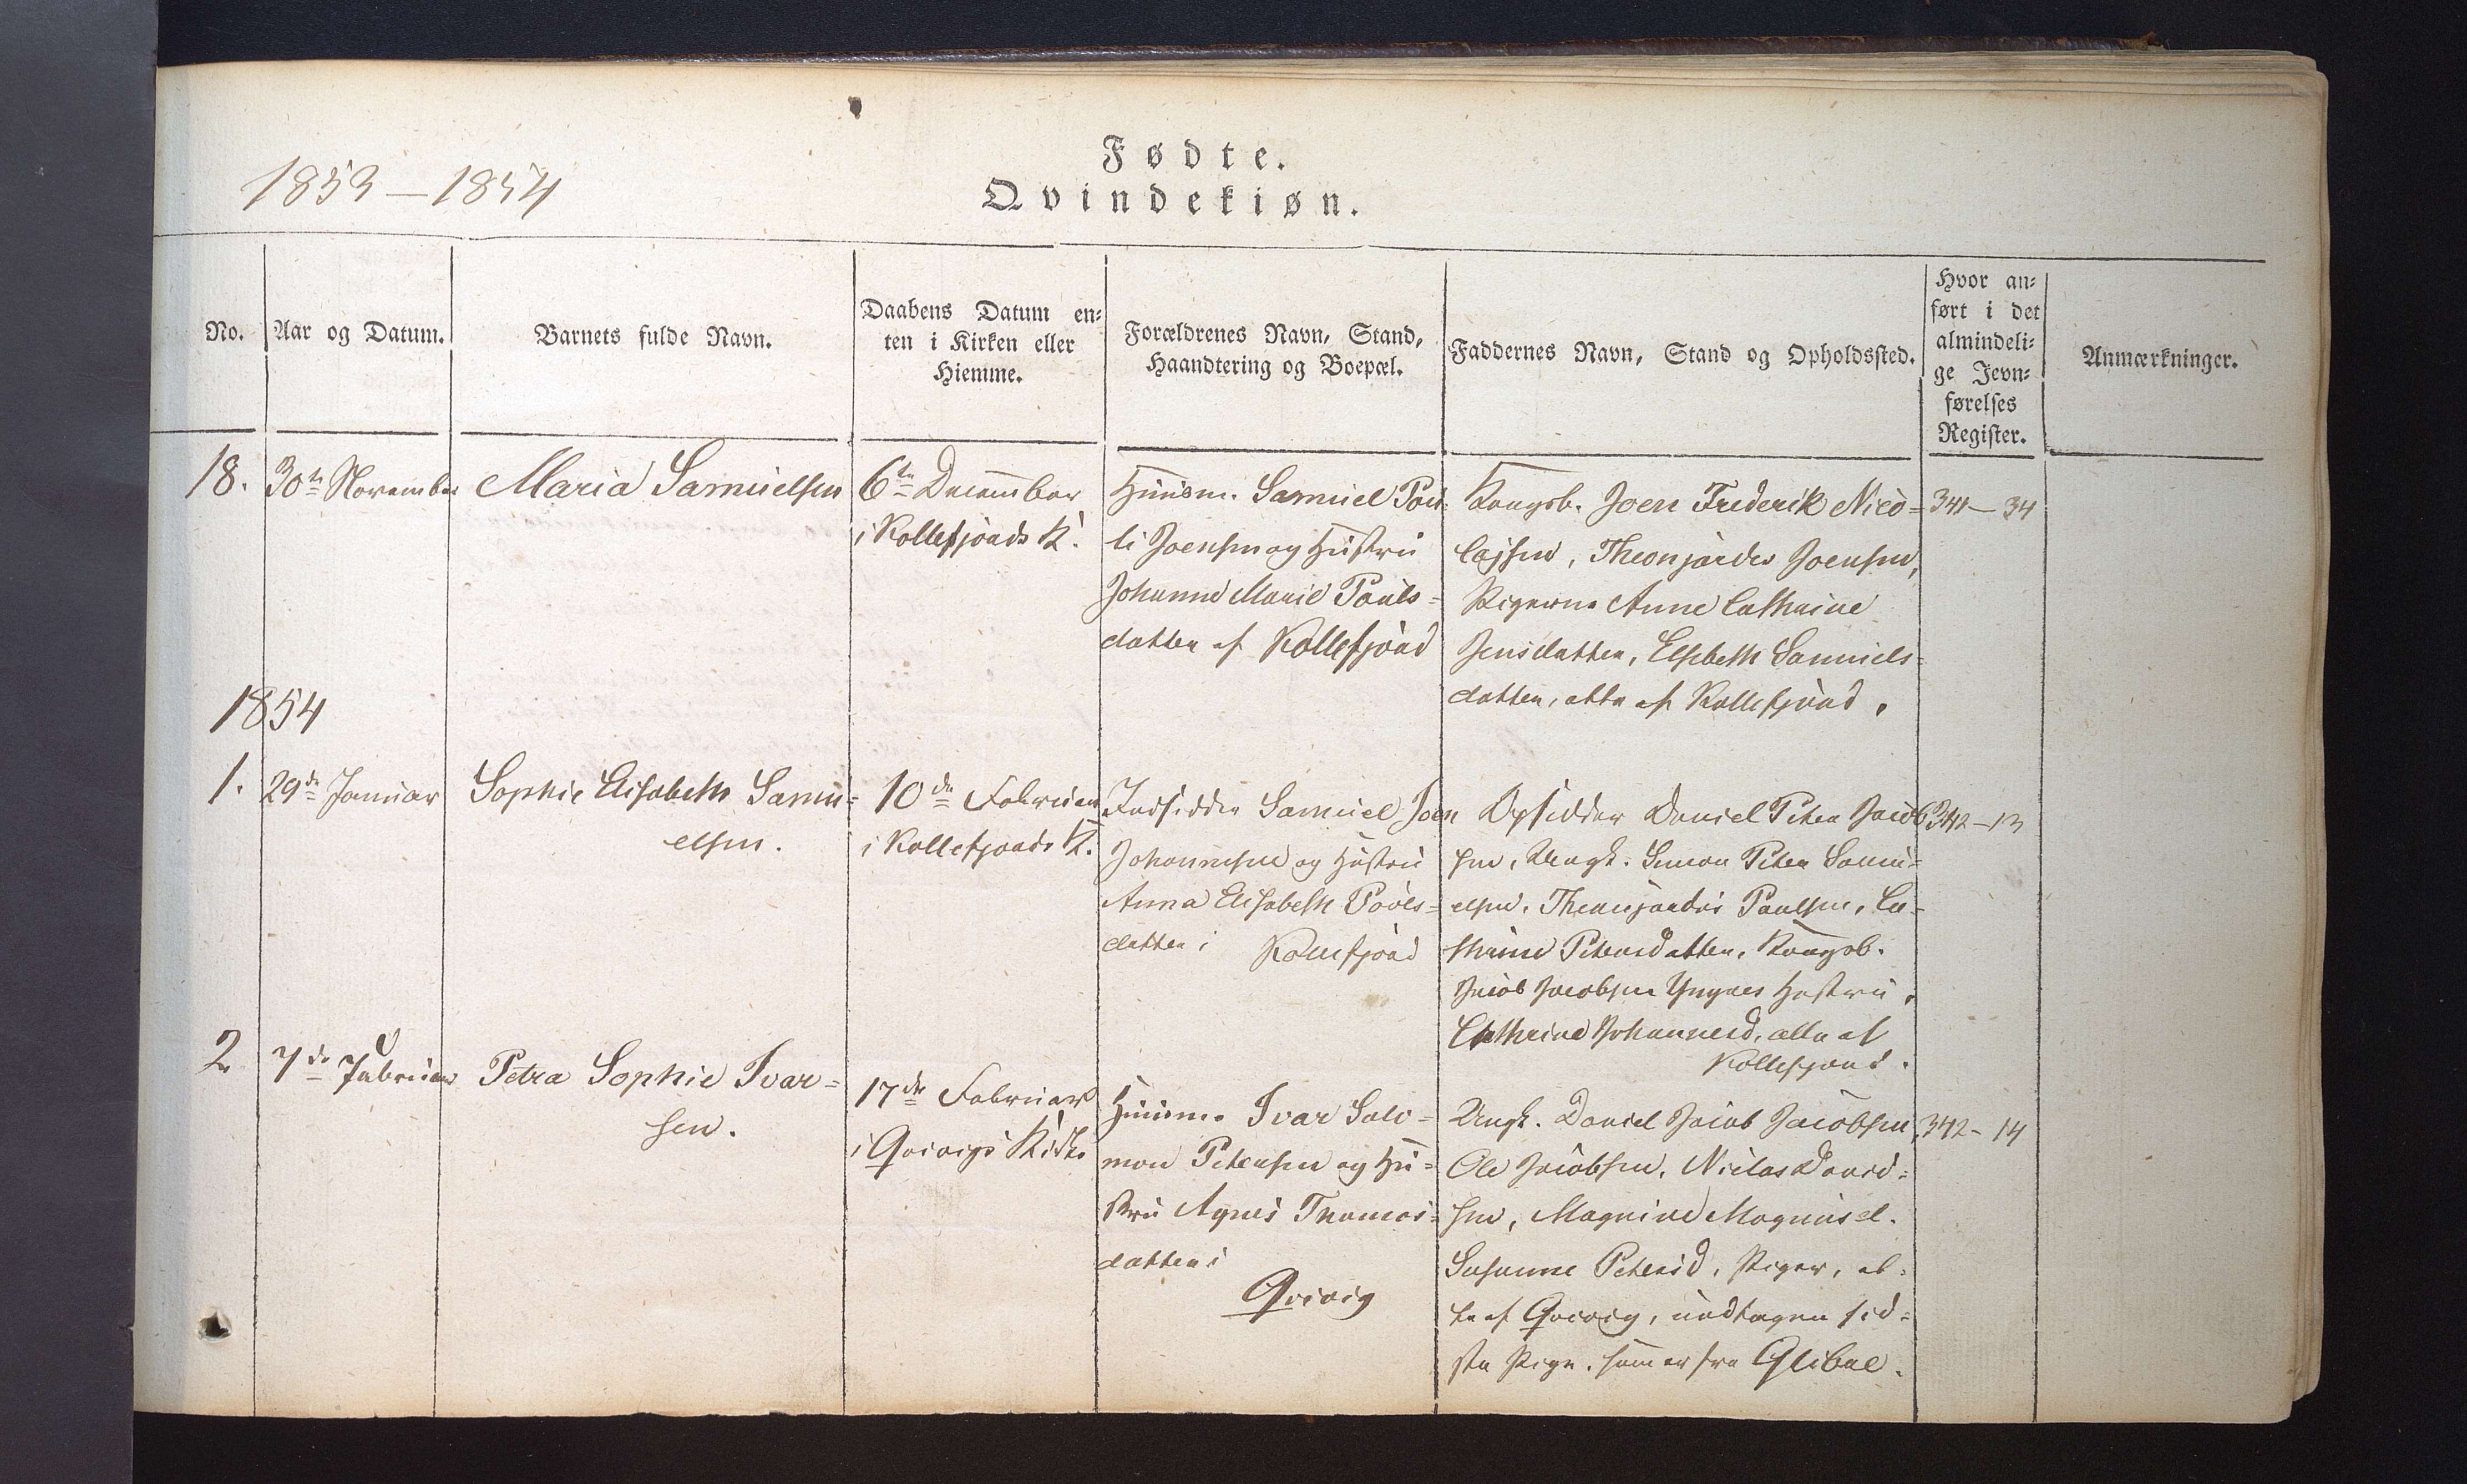 1853 – 1854
Fødte.
Qvindekiøn.
No.
Aar og Datum.
Barnets fulde Navn.
Daabens Datum en-
ten i Kirken eller
Hiemme.
Forældrenes Navn, Stand,
Haandtering og Boepæl.
Faddernes Navn, Stand og Opholdssted.
Hvor an-
ført i det
almindeli-
ge Jevn-
førelses
Register.
Anmærkninger.
18.
30te November
Maria Samuelsen
6te December
i Kollefjords K.
Huusm. Samuel Pou-
li Joensen og Hustru
Johanne Marie Pouls-
datter af Kollefjord
Kongsb. Joen Frederik Nico-
lajsen, Theonjardes Joensen,
Pigerne Anne Cathrine
Jensdatter, Elsebeth Samuels-
datter, alle af Kollefjord.
341 – 34
1854
1.
29de Januar
Sophie Elisabeth Samu-
elsen.
10de Februar
i Kollefjords K.
Indsidder Samuel Joen
Johannesen og Hustru
Anna Elisabeth Povels-
datter i Kollefjord
Opsidder Daniel Peter Jacob
sen, Ungk. Simon Peter Samu-
elsen, Theonjardes Poulsen, Ca-
thrine Petersdatter, Kongsb.
Jacob Jacobsen Yngres Hustru,
Cathrine Johannesd, alle af
Kollefjord.
342 – 13
2
7de Februar
Petra Sophie Ivar-
sen.
17de Februar
i Qvivigs Kirke
Huusm. Ivar Salo-
mon Petersen og Hu-
stru Agnes Thomas-
datter i
Qvivig
Ungk. Daniel Jacob Jacobsen,
Ole Jacobsen, Niclas David-
sen, Magnine Magnusd.
Susanne Petersd, Piger, al-
le af Qvivig, undtagen sid-
ste Pige, som er fra Glibre.
342 – 14